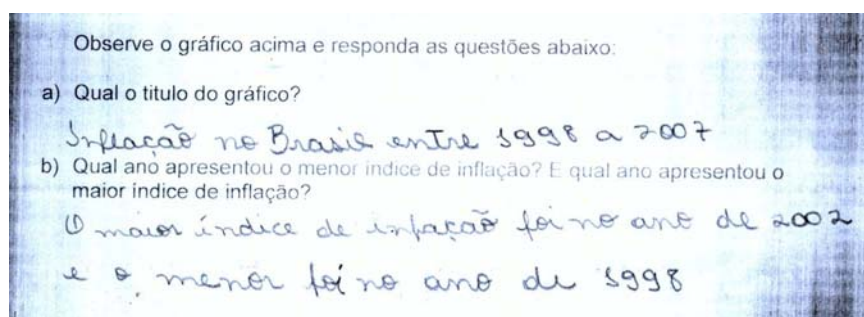 Observe o gráfico acima e responda as questões abaixo:
a) Qual o titulo do gráfico?
Inflação no Brasil entre 1998 a 2007
b) Qual ano apresentou o menor indice de inflação? E qual ano apresentou o
maior índice de inflação?
O maior índice de infação foi no ano de 2002
e o menor foi no ano de 1998